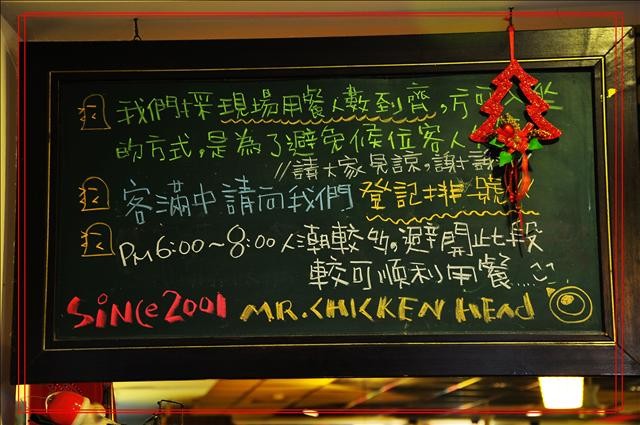 我們採現場用餐人數到齊,方可入坐
的方式,是為了避免候位客人
//請大家見諒,謝謝
客滿中請向我們登記排號
PM 6:00~8:00人潮較多,避開此段
較可順利用餐...
SINCE 2001 MR.CHICKEN HEAD